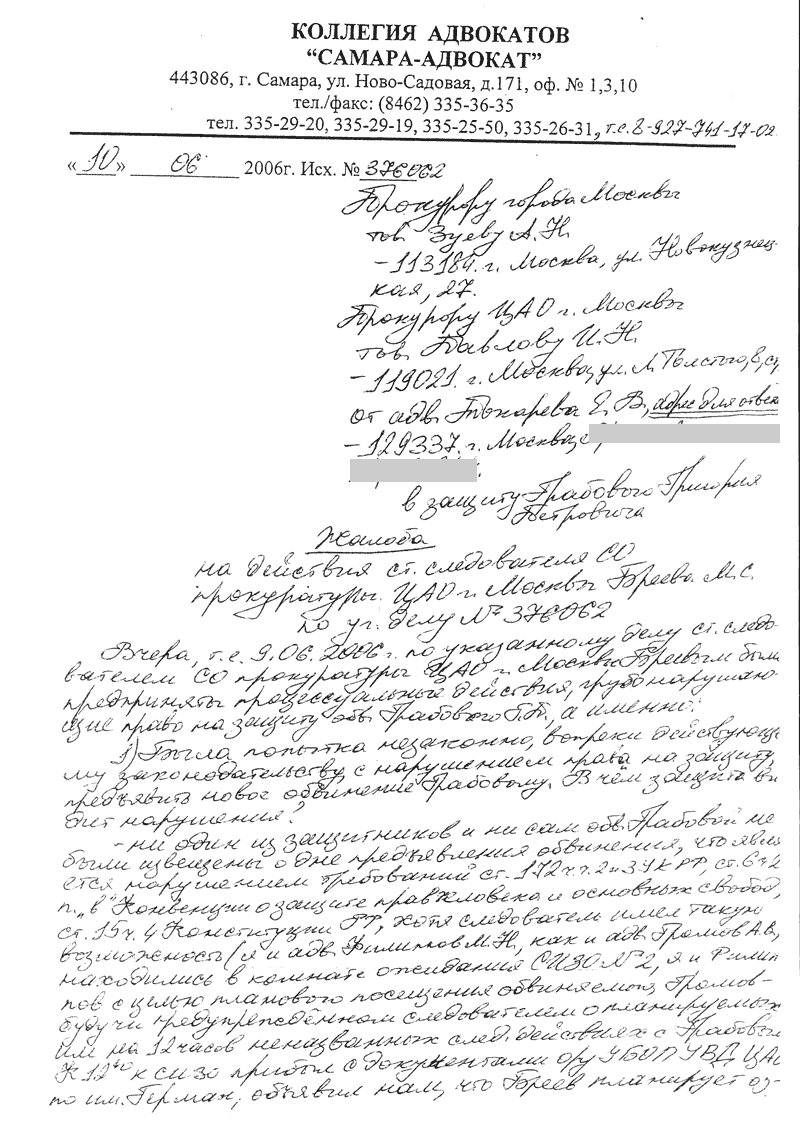 КОЛЛЕГИЯ АДВОКАТОВ
“САМАРА-АДВОКАТ”
443086, г. Самара, ул. Ново-Садовая, д.171, оф. № 1,3,10
тел./факс: (8462) 335-36-35
тел. 335-29-20, 335-29-19, 335-25-50, 335-26-31, т.с. 8-927-741-17-02
«10» 06 2006г. Исх. № 376062
Прокурору города Москвы
тов. Зуеву А.Н.
-113184. г. Москва, ул. Новокузнец-
кая, 27.
Прокурору ЦАО г. Москвы
тов. Павлову И.Н.
-119021. г. Москва, ул. Л. Толстого, 8, ст
от адв. Токарева Е.В., адрес для ответа
-129337. г. Москва,
в защиту Грабового Григория
Петровича
Жалоба
на действия ст. следователя СО
прокуратуры ЦАО г. Москвы Бреева М.С.
по уг. делу № 376062
Вчера, т.е. 9.06.2006г. по указанному делу ст. следо-
вателем СО прокуратуры ЦАО г. Москвы Бреевым были
предприняты процессуальные действия, грубо нарушаю-
щие право на защиту обв. Грабового Г.П., а именно:
1) Была попытка незаконно, вопреки действующе
му законодательству, с нарушением права на защиту,
предъявить новое обвинение Грабовому. В чём защита ви
дит нарушения?
- ни один из защитников и ни сам обв. Грабовой не
были извещены о дне предъявления обвинения, что явля
ется нарушением требований ст. 172 ч.ч. 2 и 3 УПК РФ, ст. 6 ч 2
п. „в“ Конвенции о защите прав человека и основных свобод,
ст. 15 ч. 4 Конституции РФ, хотя следователь имел такую
возможность (я и адв. Филиппов М.Н., как и адв. Громов А.В.,
находились в комнате ожидания СИЗО №2, я и Филип
пов с целью планового посещения обвиняемого, Громов-
будучи предупреждённом следователем о планируемых
им на 12 часов неназванных след. действиях с Грабовым
К 12⁴⁰ к сизо прибыл с документами о/у УБОП УВД ЦАО
по им. Герман, объявил нам, что Бреев планирует оз-